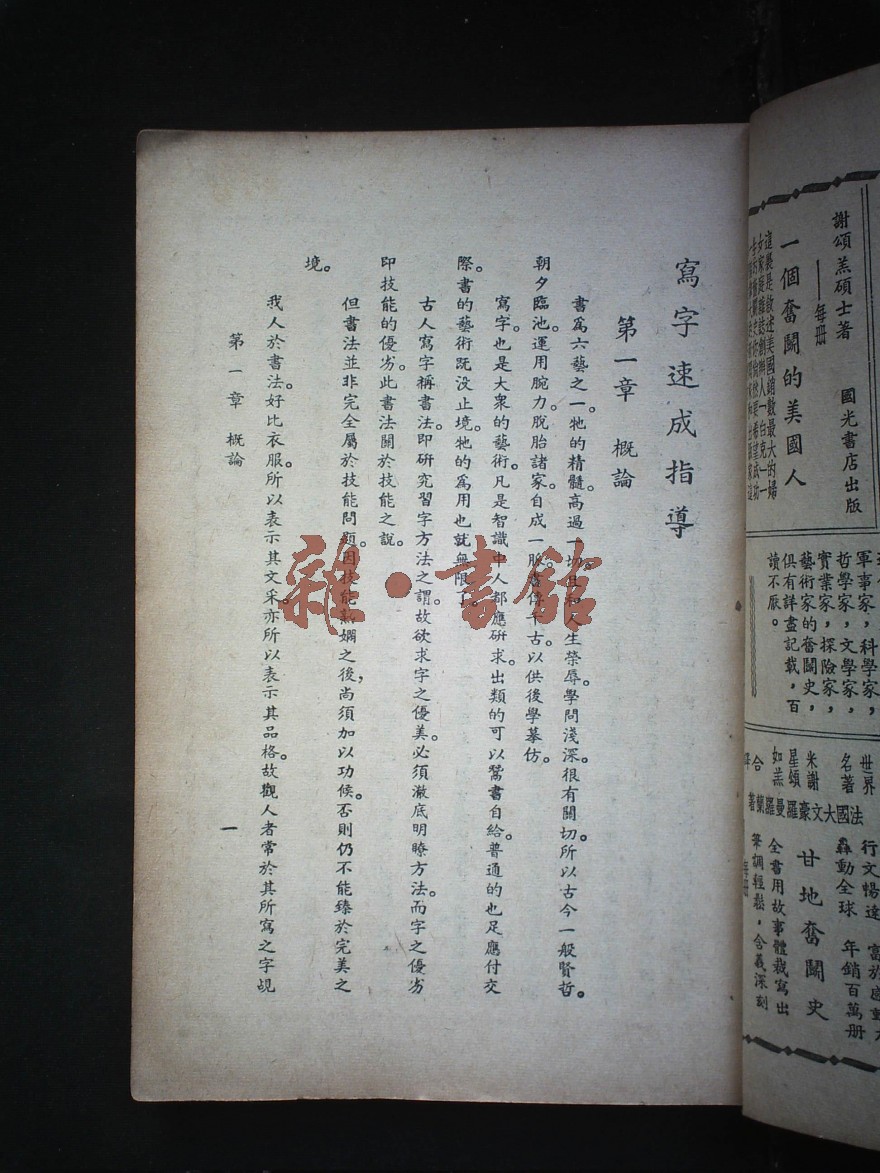 寫字速成指導
第一章 概論
書爲六藝之一。牠的精髓。高過一切。且和人生榮辱。學問淺深。很有關切。所以古今一般賢哲。
朝夕臨池。運用腕力。脫胎諸家。自成一脈。書傳千古。以供後學摹仿。
寫字。也是大衆的藝術。凡是智識中人。都應硏求。出類的可以鬻書自給。普通的也足應付交
際。書的藝術旣没止境。牠的爲用也就無限了。
古人寫字稱書法。卽硏究習字方法之謂。故欲求字之優美。必須澈底明瞭方法。而字之優劣
卽技能的優劣。此書法關於技能之說。
但書法並非完全屬於技能問題。因技能熟嫻之後，尚須加以功候。否則仍不能臻於完美之
境。
我人於書法。好比衣服。所以表示其文采。亦所以表示其品格。故觀人者常於其所寫之字覘
第一章 概論
一
雜·書館
謝頌羔碩士著 國光書店出版
——每册
一個奮鬭的美國人
這裏是敘述美國銷數最大的婦
軍事家，科學家，
哲學家，文學家，
實業家，探險家，
藝術家的奮鬭史，
俱有詳盡記載，百
讀不厭。
世界
名著
米星如
謝頌羔
合譯
法國大文豪羅曼羅蘭著
甘地奮鬭史
行文暢達
轟動全球 年銷百萬册
全書用故事體裁寫出
筆調輕鬆，含義深刻
每册